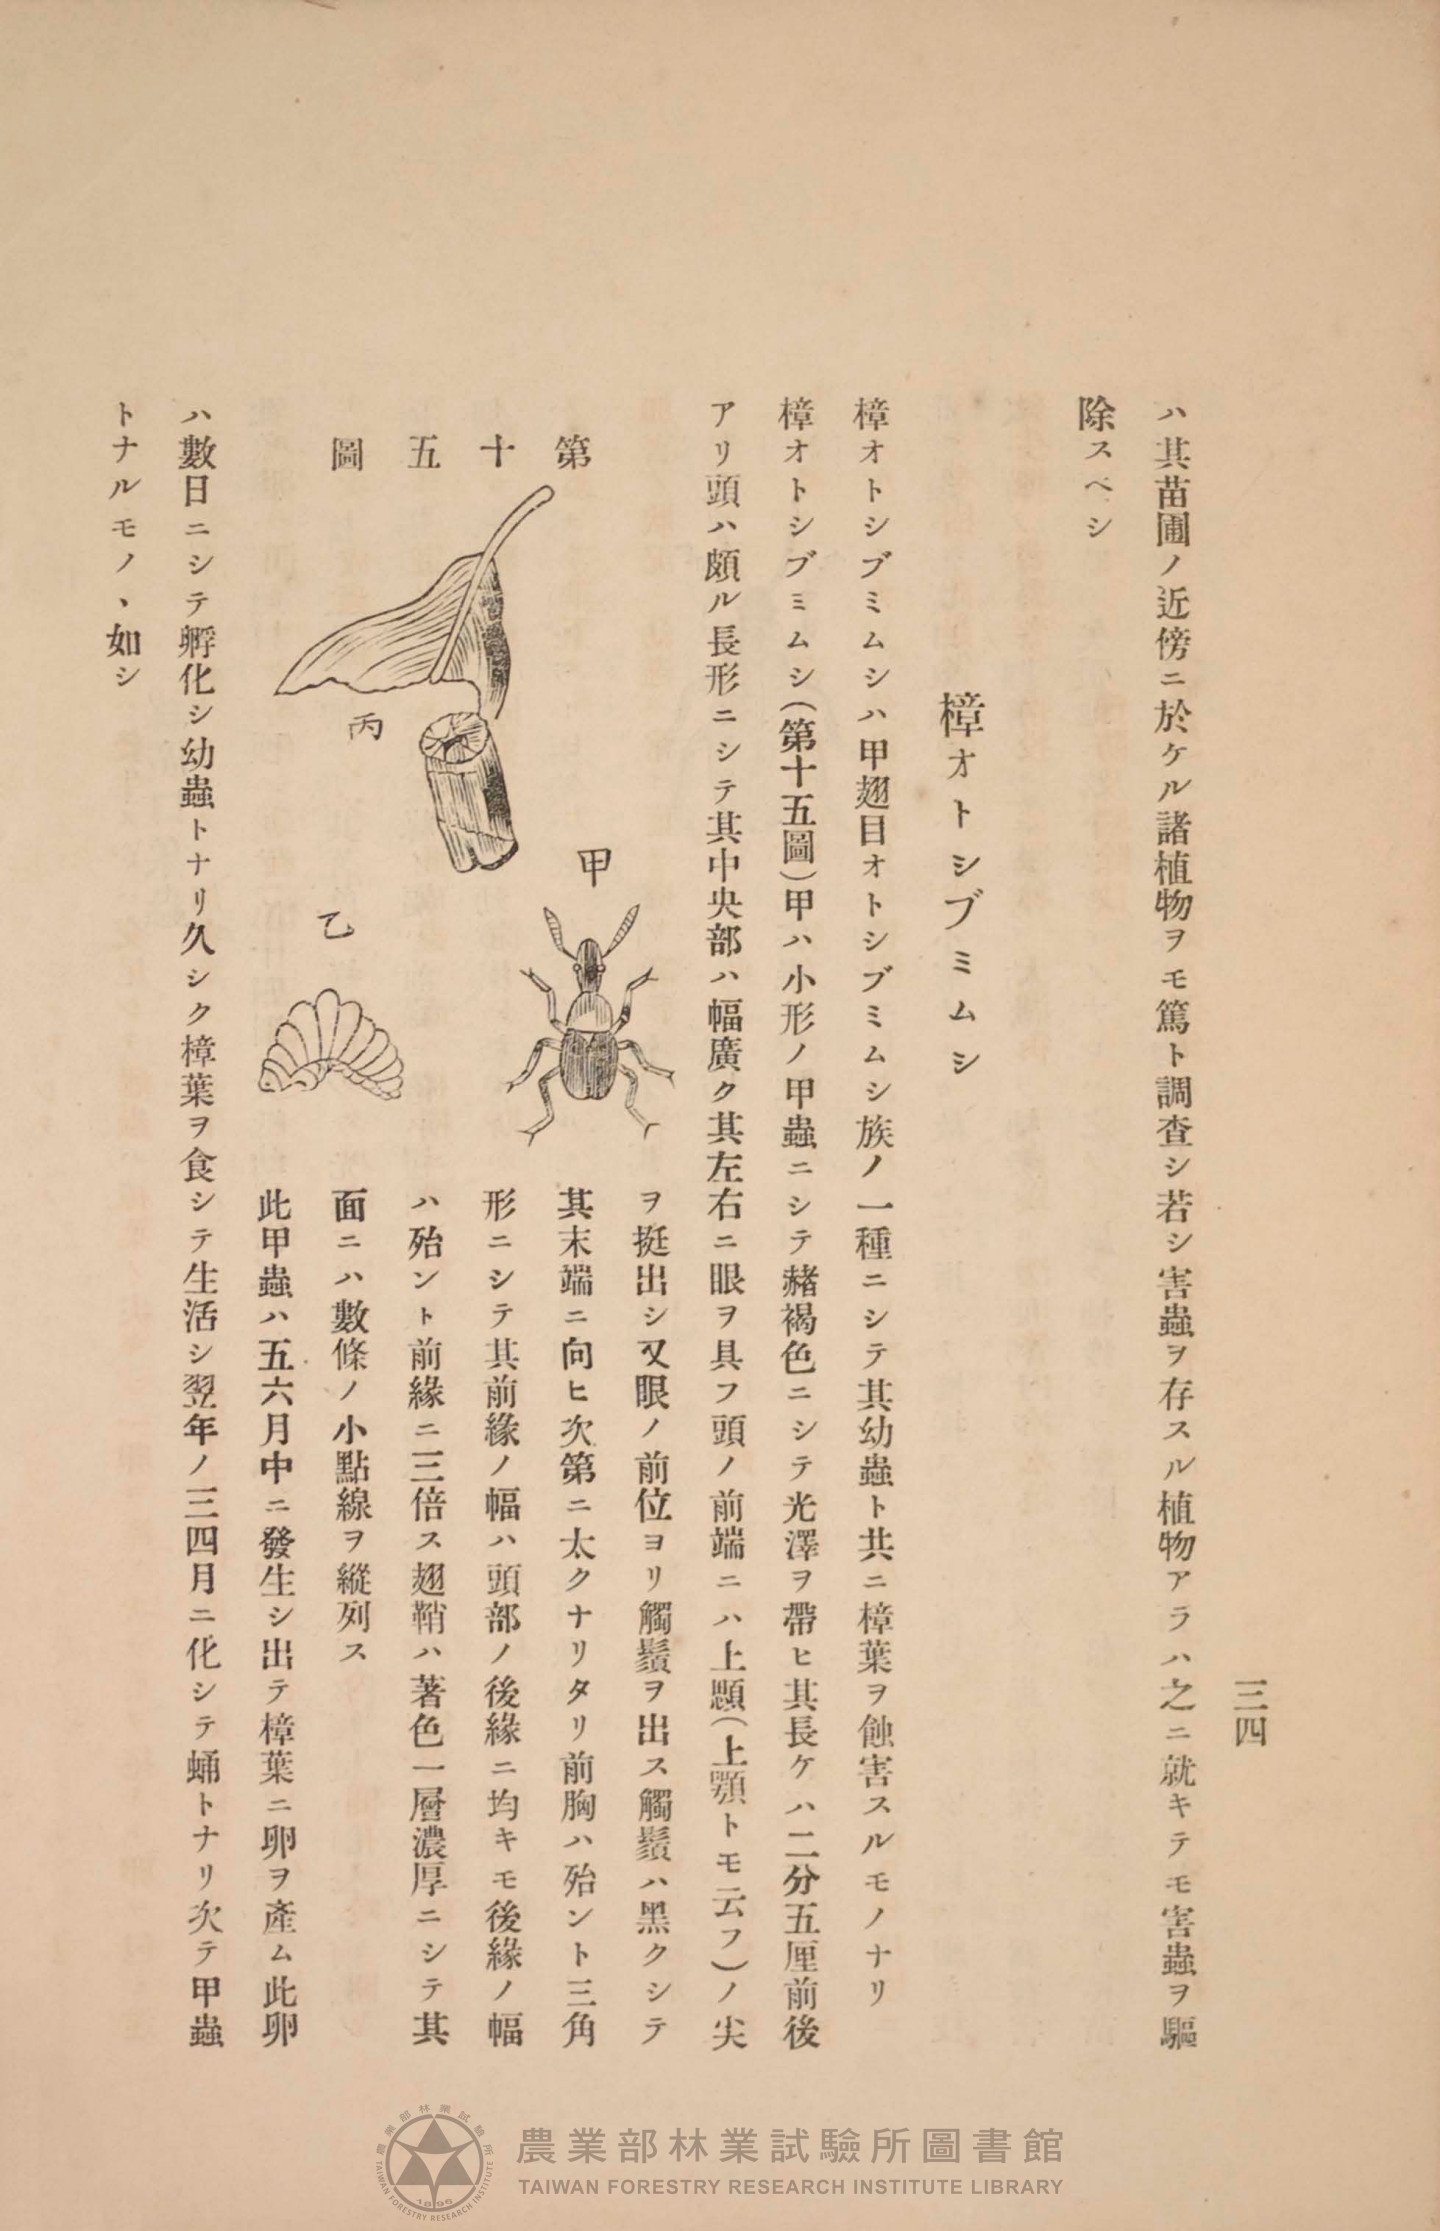 三四
ハ其苗圃ノ近傍ニ於ケル諸植物ヲモ篤ト調査シ若シ害蟲ヲ存スル植物アラハ之ニ就キテモ害蟲ヲ驅
除スベシ
樟オトシブミムシ
樟オトシブミムシハ甲翅目オトシブミムシ族ノ一種ニシテ其幼蟲ト共ニ樟葉ヲ蝕害スルモノナリ
樟オトシブミムシ(第十五圖)甲ハ小形ノ甲蟲ニシテ赭褐色ニシテ光澤ヲ帶ヒ其長ケハ二分五厘前後
アリ頭ハ頗ル長形ニシテ其中央部ハ幅廣ク其左右ニ眼ヲ具フ頭ノ前端ニハ上顋(上顎トモ云フ)ノ尖
ヲ挺出シ又眼ノ前位ヨリ觸鬚ヲ出ス觸鬚ハ黑クシテ
其末端ニ向ヒ次第ニ太クナリタリ前胸ハ殆ント三角
形ニシテ其前緣ノ幅ハ頭部ノ後緣ニ均キモ後緣ノ幅
ハ殆ント前緣ニ三倍ス翅鞘ハ著色一層濃厚ニシテ其
面ニハ數條ノ小點線ヲ縱列ス
此甲蟲ハ五六月中ニ發生シ出テ樟葉ニ卵ヲ產ム此卵
第十五圖
甲
乙
丙
ハ數日ニシテ孵化シ幼蟲トナリ久シク樟葉ヲ食シテ生活シ翌年ノ三四月ニ化シテ蛹トナリ次テ甲蟲
トナルモノヽ如シ
農業部林業試驗所圖書館
TAIWAN FORESTRY RESEARCH INSTITUTE LIBRARY
農業部林業試驗所
TAIWAN FORESTRY RESEARCH INSTITUTE
1896